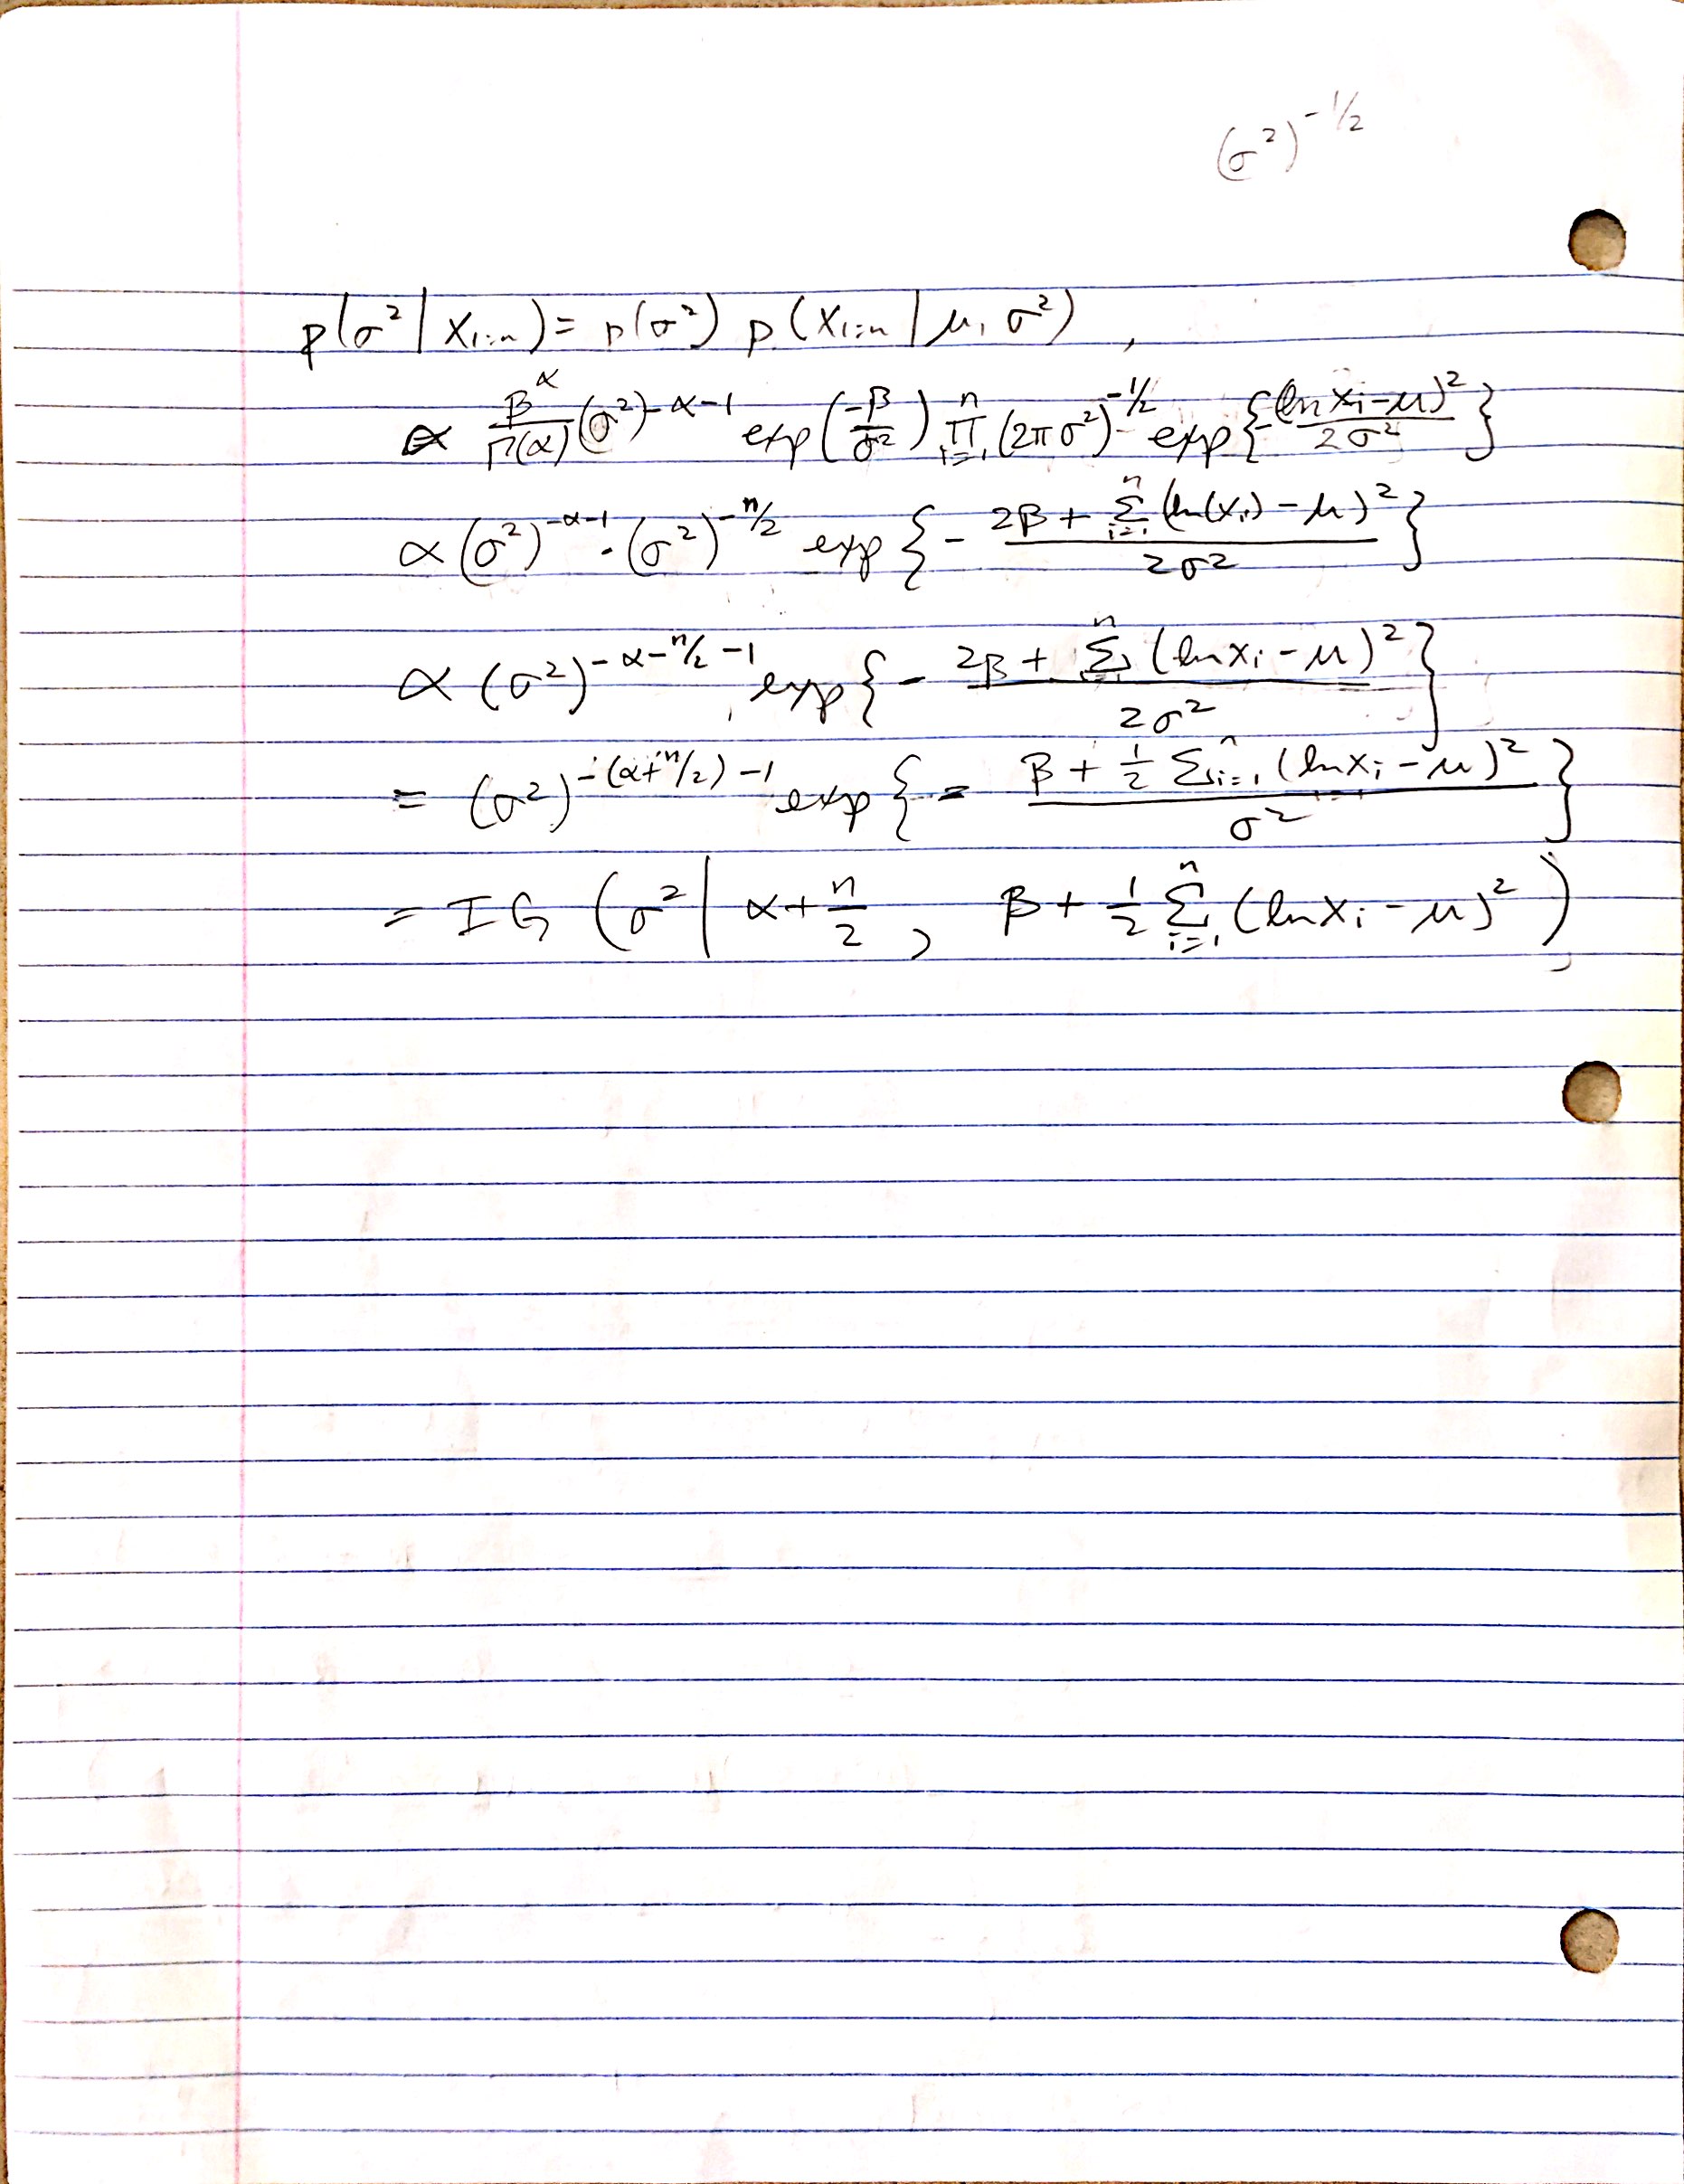 (σ²)^(-1/2)
p(σ² | x₁:ₙ) = p(σ²) p(x₁:ₙ | μ, σ²) ,
∝ β^α/Γ(α) (σ²)^(-α-1) exp(-β/σ²) ∏ᵢ₌₁ⁿ (2πσ²)^(-1/2) exp{-(ln xᵢ-μ)²/2σ²}
∝ (σ²)^(-α-1) · (σ²)^(-n/2) exp{- (2β + Σᵢ₌₁ⁿ (ln(xᵢ) - μ)²)/2σ²}
∝ (σ²)^(-α-n/2-1) exp{- (2β + Σᵢ₌₁ⁿ (ln xᵢ - μ)²)/2σ²}
= (σ²)^(-(α+n/2)-1) exp{- (β + 1/2 Σᵢ₌₁ⁿ (ln xᵢ - μ)²)/σ²}
= IG (σ² | α + n/2 , β + 1/2 Σᵢ₌₁ⁿ (ln xᵢ - μ)²)